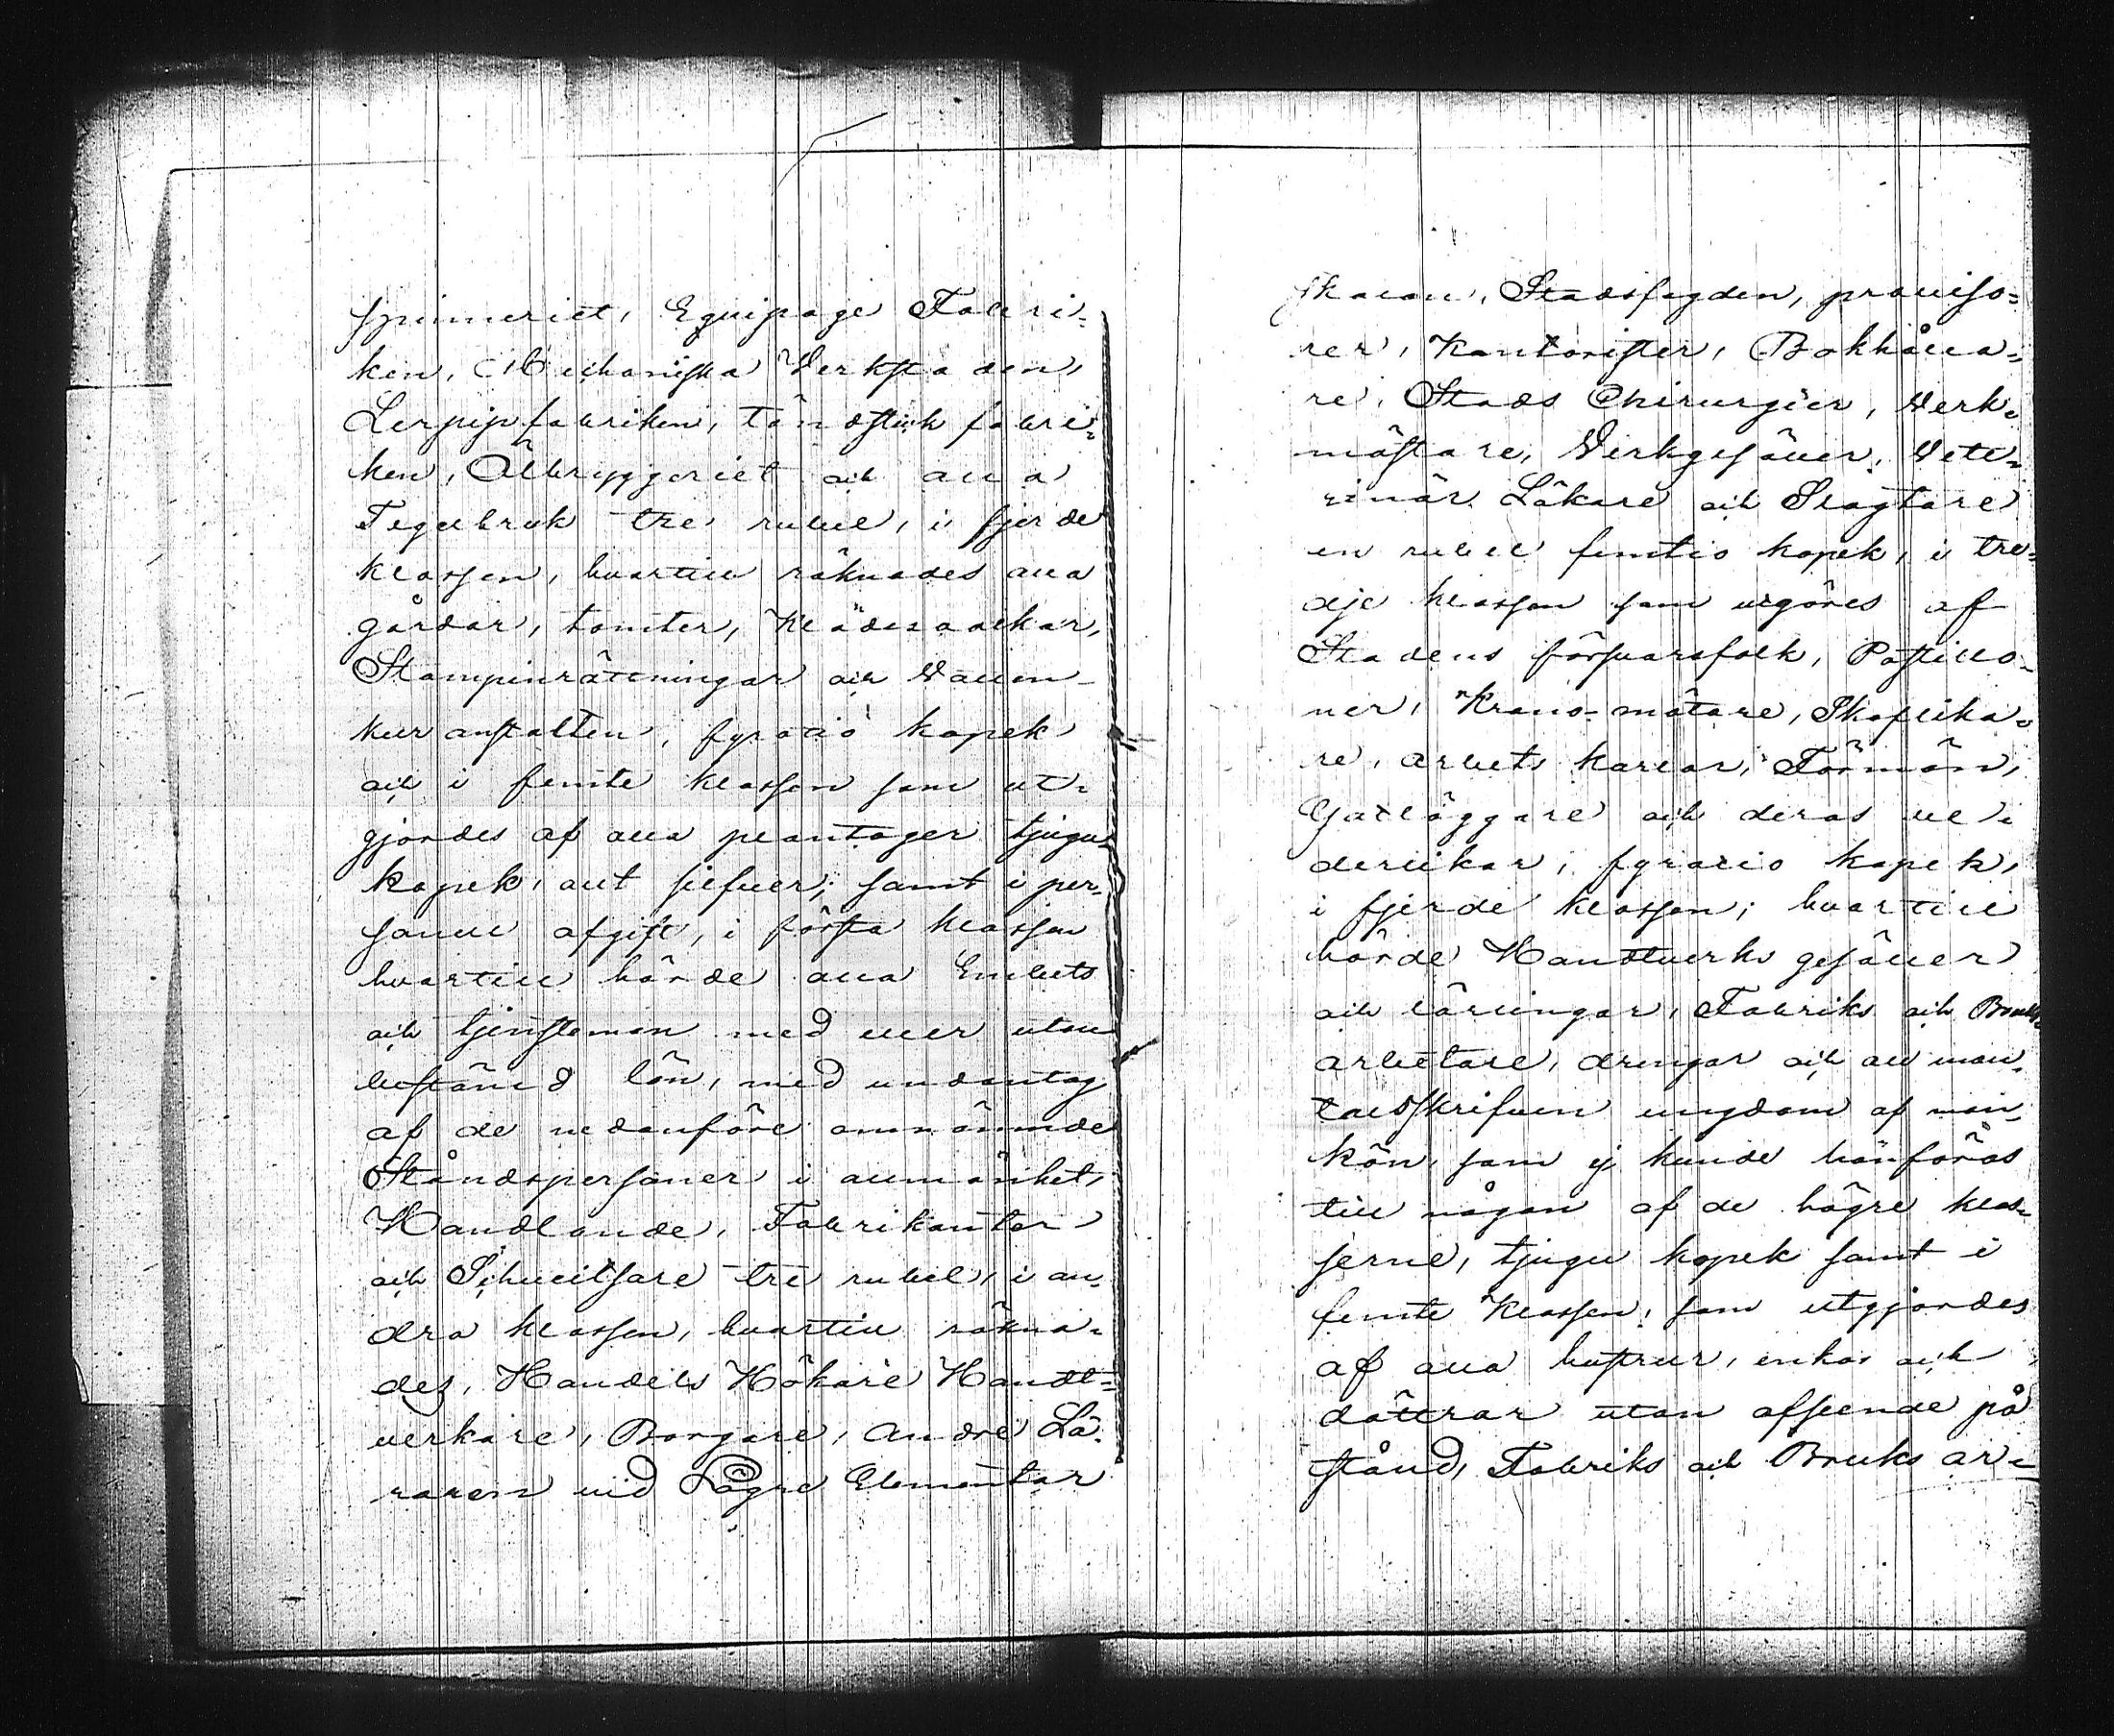 spinneriet, Equipage Fabri-
ken, Mechaniska Verkstaden,
Lerpipfabriken, tändstick fabri-
ken, Ölbryggeriet och alla
Tegelbruk tre rubel, i fjerde
klassen, hvartill räknades alla
gårdar, tomter, Klädesvalkar,
Stampinrättningar och Vatten-
kur anstalten, fyratio kopek
och i femte klassen som ut-
gjordes af alla plantager tjugu
kopek, allt silfver; samt i per-
sonell afgift, i första klassen
hvartill hörde alla Embets
och tjenstemän med eller utan
bestämd lön, med undantag
af de nedanföre omnämnde
Ståndspersoner i allmänhet,
Handlande, Fabrikanter
och Schweitsare tre rubel, i an-
dra klassen, hvartill räkna-
des, Handels Hökare Handt-
verkare, Borgare, Andre Lä-
raren vid Lägre Elementar
skolan, Stadsfogden, proviso-
rer, Kontorister, Bokhålla-
re, Stads Chirurgier, Verk-
mästare, Verkgesäller, Vete-
rinär Läkare och Slagtare
en rubel femtio kopek, i tre-
dje klassen som utgöres af
Stadens försvarsfolk, Postillo-
ner, Krono-mätare, Skeppika-
re, arbets karlar, Formän,
Gatläggare och deras ve-
derlikar, fyratio kopek,
i fjerde klassen; hvartill
hörde Handtverks gesäller
och lärlingar, Fabriks och Bruks-
arbetare, drengar och all man-
talsskrifven ungdom af man-
kön, som ej kunde hänföras
till någon af de högre klas-
serne, tjugu kopek samt i
femte Klassen, som utgjordes
af alla hustrur, enkor och
döttrar utan afseende på
stånd, Fabriks och Bruks ar-